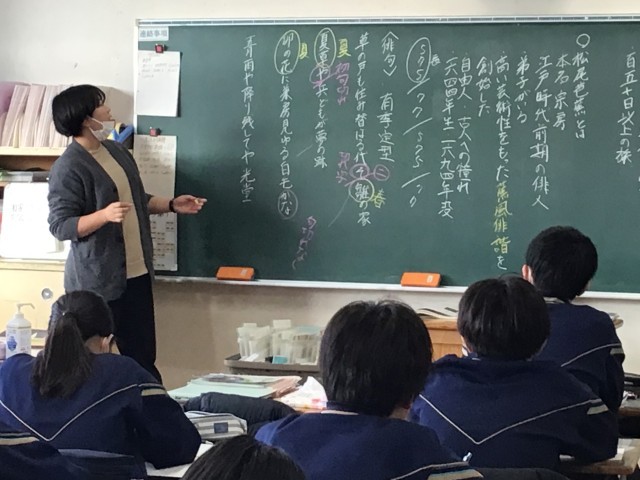 百五十日以上の旅
○松尾芭蕉とは
本名 宗房
江戸時代前期の俳人
弟子がいる
高い芸術性をもった蕉風俳諧を
創始した
自由人 古人への憧れ
一六四四年生 一六九四年没
575/77/575/77
〈俳句〉 有季定型
草の戸も住み替はる代ぞ雛の家
春
夏 切れ字
夏草や兵どもが夢の跡
夏
卯の花に兼房見ゆる白毛かな
五月雨や降り残してや光堂
連絡事項